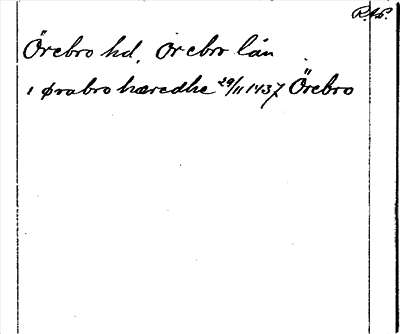 R.A.P.
Örebro hd, Örebro län
i ørabro hæredhe 29/11 1437 Örebro